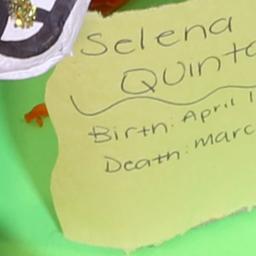 Selena
Quint
Birth: April 1
Death: Marc